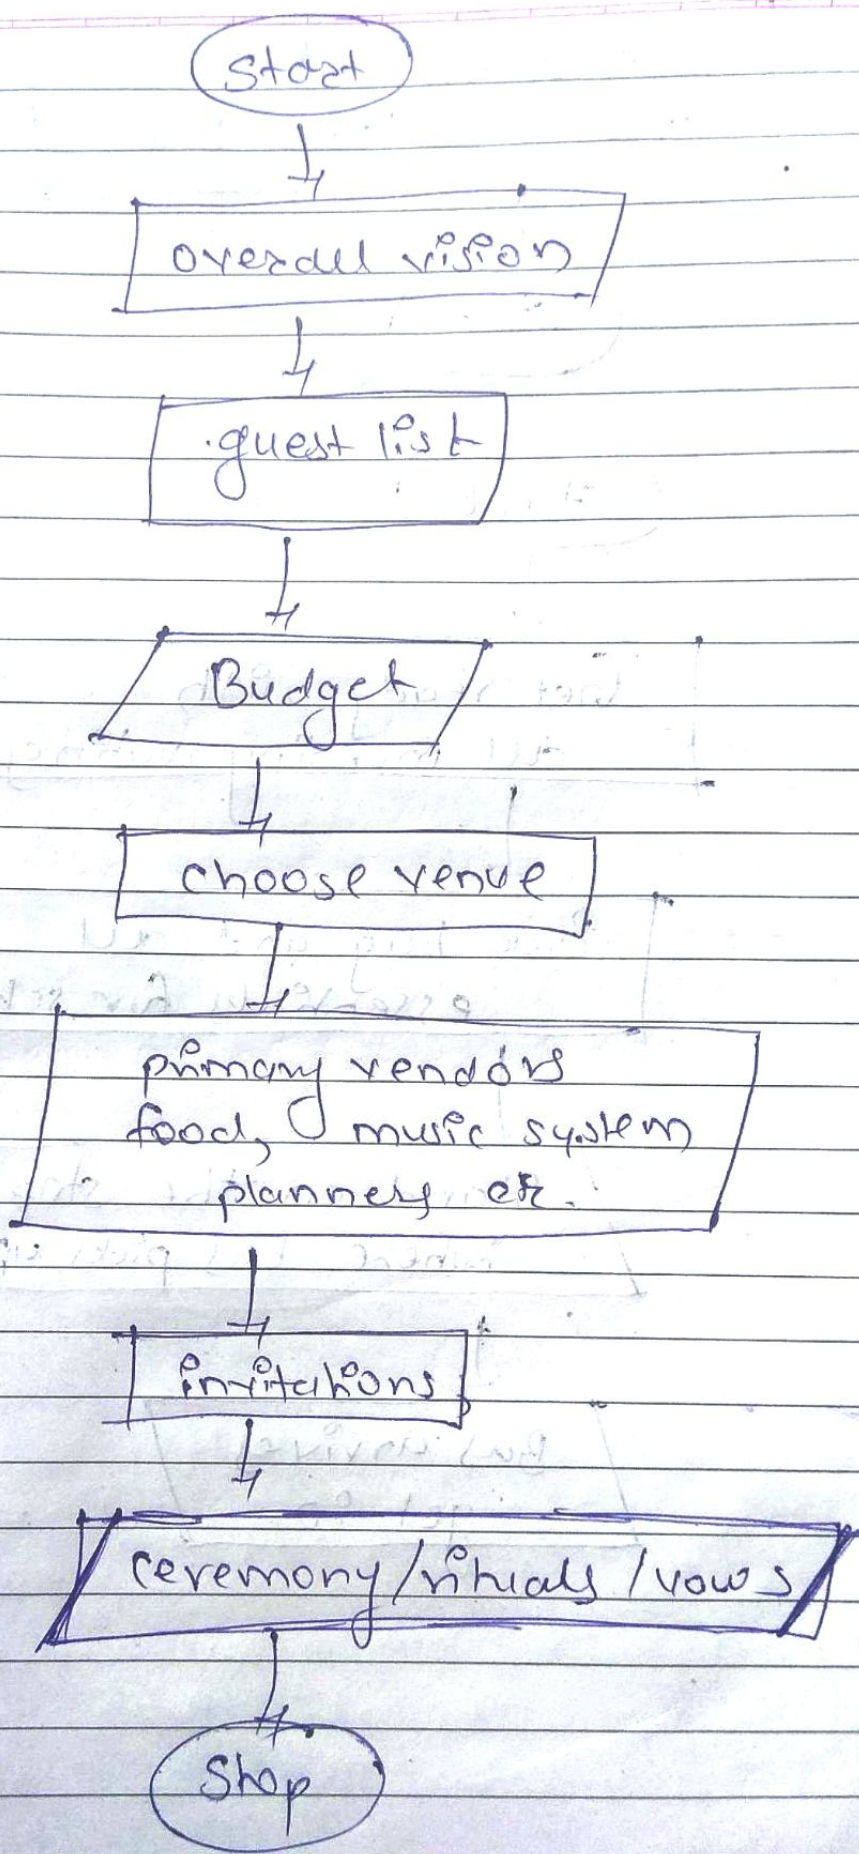 Start
overall vision
guest list
Budget
choose venue
primary vendors
food, music system
planners etc.
invitations
ceremony/rituals/vows
Stop